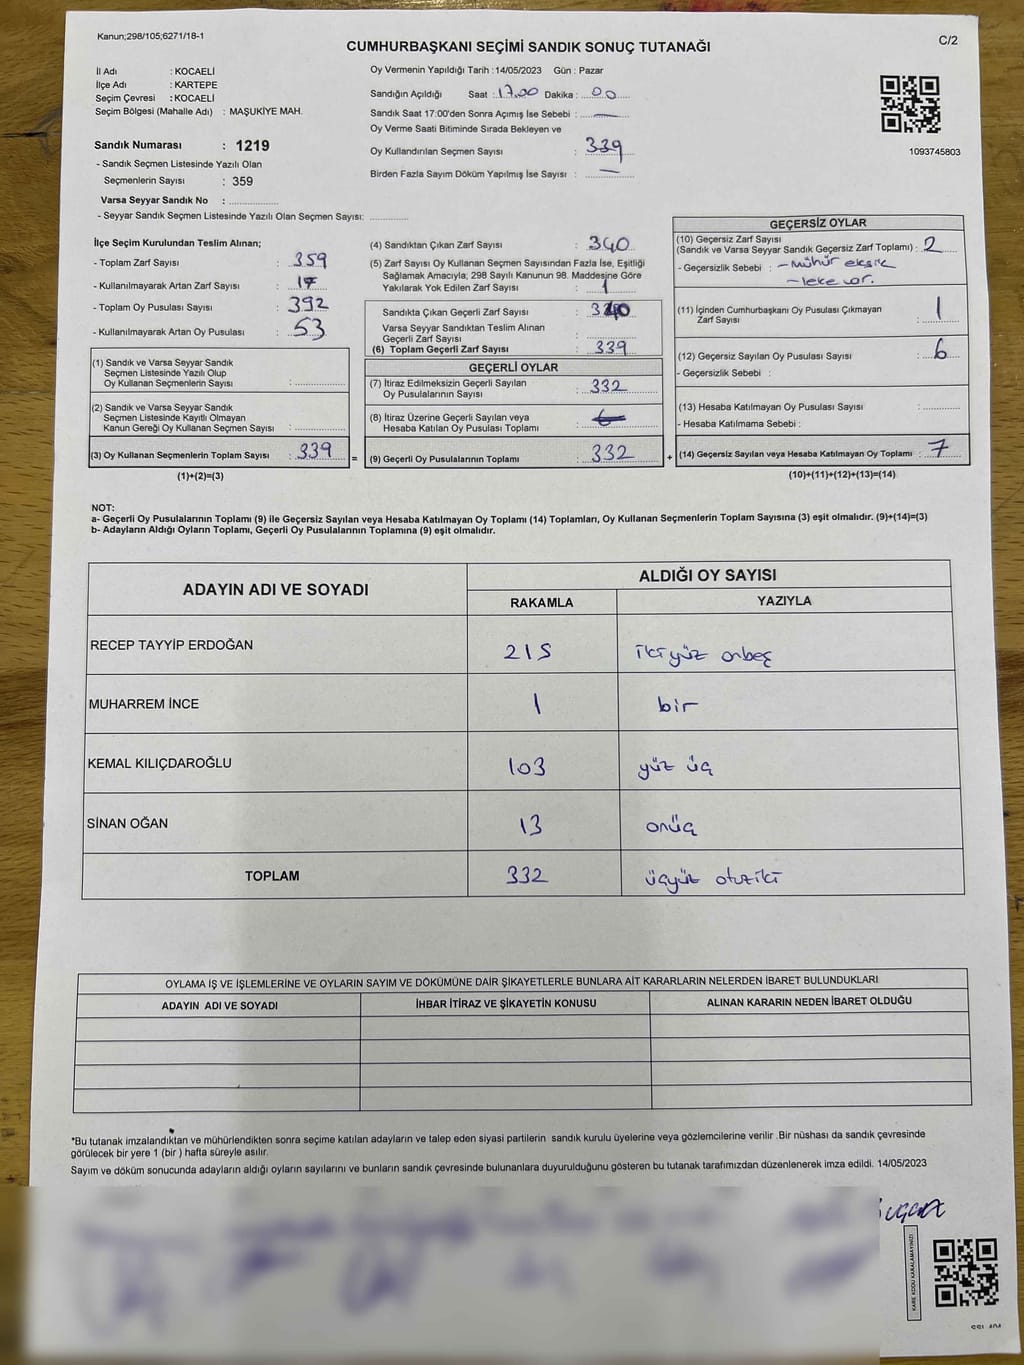 Kanun;298/105;6271/18-1
C/2
CUMHURBAŞKANI SEÇİMİ SANDIK SONUÇ TUTANAĞI
İl Adı : KOCAELİ
İlçe Adı : KARTEPE
Seçim Çevresi : KOCAELİ
Seçim Bölgesi (Mahalle Adı) : MAŞUKİYE MAH.
Sandık Numarası : 1219
- Sandık Seçmen Listesinde Yazılı Olan
Seçmenlerin Sayısı : 359
Varsa Seyyar Sandık No :
- Seyyar Sandık Seçmen Listesinde Yazılı Olan Seçmen Sayısı:
Oy Vermenin Yapıldığı Tarih :14/05/2023 Gün : Pazar
Sandığın Açıldığı Saat : 17.00 Dakika : 00
Sandık Saat 17:00'den Sonra Açımış İse Sebebi : —
Oy Verme Saati Bitiminde Sırada Bekleyen ve
Oy Kullandırılan Seçmen Sayısı : 339
Birden Fazla Sayım Döküm Yapılmış İse Sayısı : —
1093745803
İlçe Seçim Kurulundan Teslim Alınan;
- Toplam Zarf Sayısı : 359
- Kullanılmayarak Artan Zarf Sayısı : 17
- Toplam Oy Pusulası Sayısı : 392
- Kullanılmayarak Artan Oy Pusulası : 53
(1) Sandık ve Varsa Seyyar Sandık
Seçmen Listesinde Yazılı Olup
Oy Kullanan Seçmenlerin Sayısı :
(2) Sandık ve Varsa Seyyar Sandık
Seçmen Listesinde Kayıtlı Olmayan
Kanun Gereği Oy Kullanan Seçmen Sayısı :
(3) Oy Kullanan Seçmenlerin Toplam Sayısı : 339
(1)+(2)=(3)
=
(4) Sandıktan Çıkan Zarf Sayısı : 340
(5) Zarf Sayısı Oy Kullanan Seçmen Sayısından Fazla İse, Eşitliği
Sağlamak Amacıyla; 298 Sayılı Kanunun 98. Maddesine Göre
Yakılarak Yok Edilen Zarf Sayısı : 1
Sandıkta Çıkan Geçerli Zarf Sayısı : 340
Varsa Seyyar Sandıktan Teslim Alınan
Geçerli Zarf Sayısı :
(6) Toplam Geçerli Zarf Sayısı : 339
GEÇERLİ OYLAR
(7) İtiraz Edilmeksizin Geçerli Sayılan
Oy Pusulalarının Sayısı : 332
(8) İtiraz Üzerine Geçerli Sayılan veya
Hesaba Katılan Oy Pusulası Toplamı :
(9) Geçerli Oy Pusulalarının Toplamı : 332
+
GEÇERSİZ OYLAR
(10) Geçersiz Zarf Sayısı
(Sandık ve Varsa Seyyar Sandık Geçersiz Zarf Toplamı) : 2
- Geçersizlik Sebebi : - Mühür eksik
- leke var.
(11) İçinden Cumhurbaşkanı Oy Pusulası Çıkmayan
Zarf Sayısı : 1
(12) Geçersiz Sayılan Oy Pusulası Sayısı : 6
- Geçersizlik Sebebi :
(13) Hesaba Katılmayan Oy Pusulası Sayısı :
- Hesaba Katılmama Sebebi :
(14) Geçersiz Sayılan veya Hesaba Katılmayan Oy Toplamı : 7
(10)+(11)+(12)+(13)=(14)
NOT:
a- Geçerli Oy Pusulalarının Toplamı (9) ile Geçersiz Sayılan veya Hesaba Katılmayan Oy Toplamı (14) Toplamları, Oy Kullanan Seçmenlerin Toplam Sayısına (3) eşit olmalıdır. (9)+(14)=(3)
b- Adayların Aldığı Oyların Toplamı, Geçerli Oy Pusulalarının Toplamına (9) eşit olmalıdır.
ADAYIN ADI VE SOYADI
ALDIĞI OY SAYISI
RAKAMLA YAZIYLA
RECEP TAYYİP ERDOĞAN 215 iki yüz onbeş
MUHARREM İNCE 1 bir
KEMAL KILIÇDAROĞLU 103 yüz üç
SİNAN OĞAN 13 onüç
TOPLAM 332 üçyüz otuziki
OYLAMA İŞ VE İŞLEMLERİNE VE OYLARIN SAYIM VE DÖKÜMÜNE DAİR ŞİKAYETLERLE BUNLARA AİT KARARLARIN NELERDEN İBARET BULUNDUKLARI
ADAYIN ADI VE SOYADI İHBAR İTİRAZ VE ŞİKAYETİN KONUSU ALINAN KARARIN NEDEN İBARET OLDUĞU
*Bu tutanak imzalandıktan ve mühürlendikten sonra seçime katılan adayların ve talep eden siyasi partilerin sandık kurulu üyelerine veya gözlemcilerine verilir .Bir nüshası da sandık çevresinde
görülecek bir yere 1 (bir ) hafta süreyle asılır.
Sayım ve döküm sonucunda adayların aldığı oyların sayılarını ve bunların sandık çevresinde bulunanlara duyurulduğunu gösteren bu tutanak tarafımızdan düzenlenerek imza edildi. 14/05/2023
KARE KODU KARALAMAYINIZ!